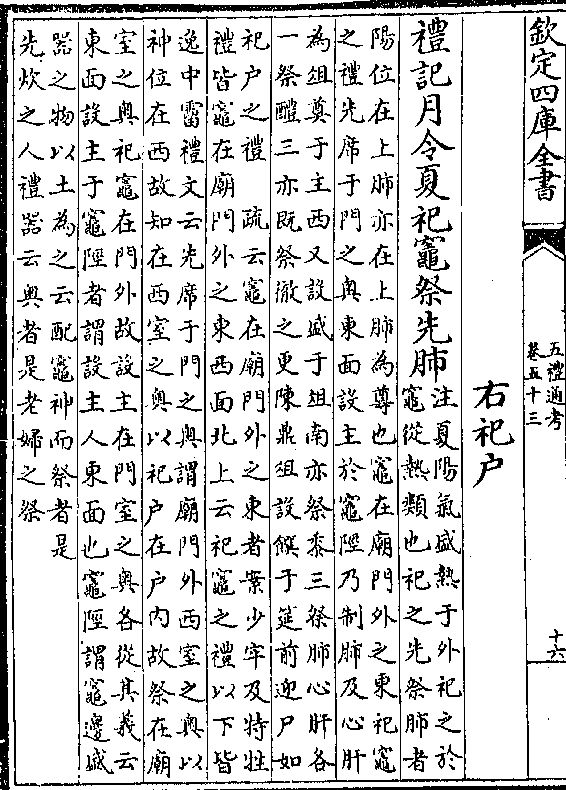 欽定四庫全書
五禮通考
卷五十三
十六
右祀户
禮記月令夏祀竈祭先肺
注夏陽氣盛熱于外祀之於
竈從熱類也祀之先祭肺者
陽位在上肺亦在上肺為尊也竈在廟門外之東祀竈
之禮先席于門之奥東面設主於竈陘乃制肺及心肝
為俎奠于主西又設盛于俎南亦祭黍三祭肺心肝各
一祭醴三亦既祭徹之更陳鼎俎設饌于筵前迎尸如
祀户之禮　疏云竈在廟門外之東者案少牢及特牲
禮皆竈在廟門外之東西面北上云祀竈之禮以下皆
逸中霤禮文云先席于門之奥謂廟門外西室之奥以
神位在西故知在西室之奥以祀户在户内故祭在廟
室之奥祀竈在門外故設主在門室之奥各從其義云
東面設主于竈陘者謂設主人東面也竈陘謂竈邊盛
器之物以土為之云配竈神而祭者是
先炊之人禮器云奥者是老婦之祭